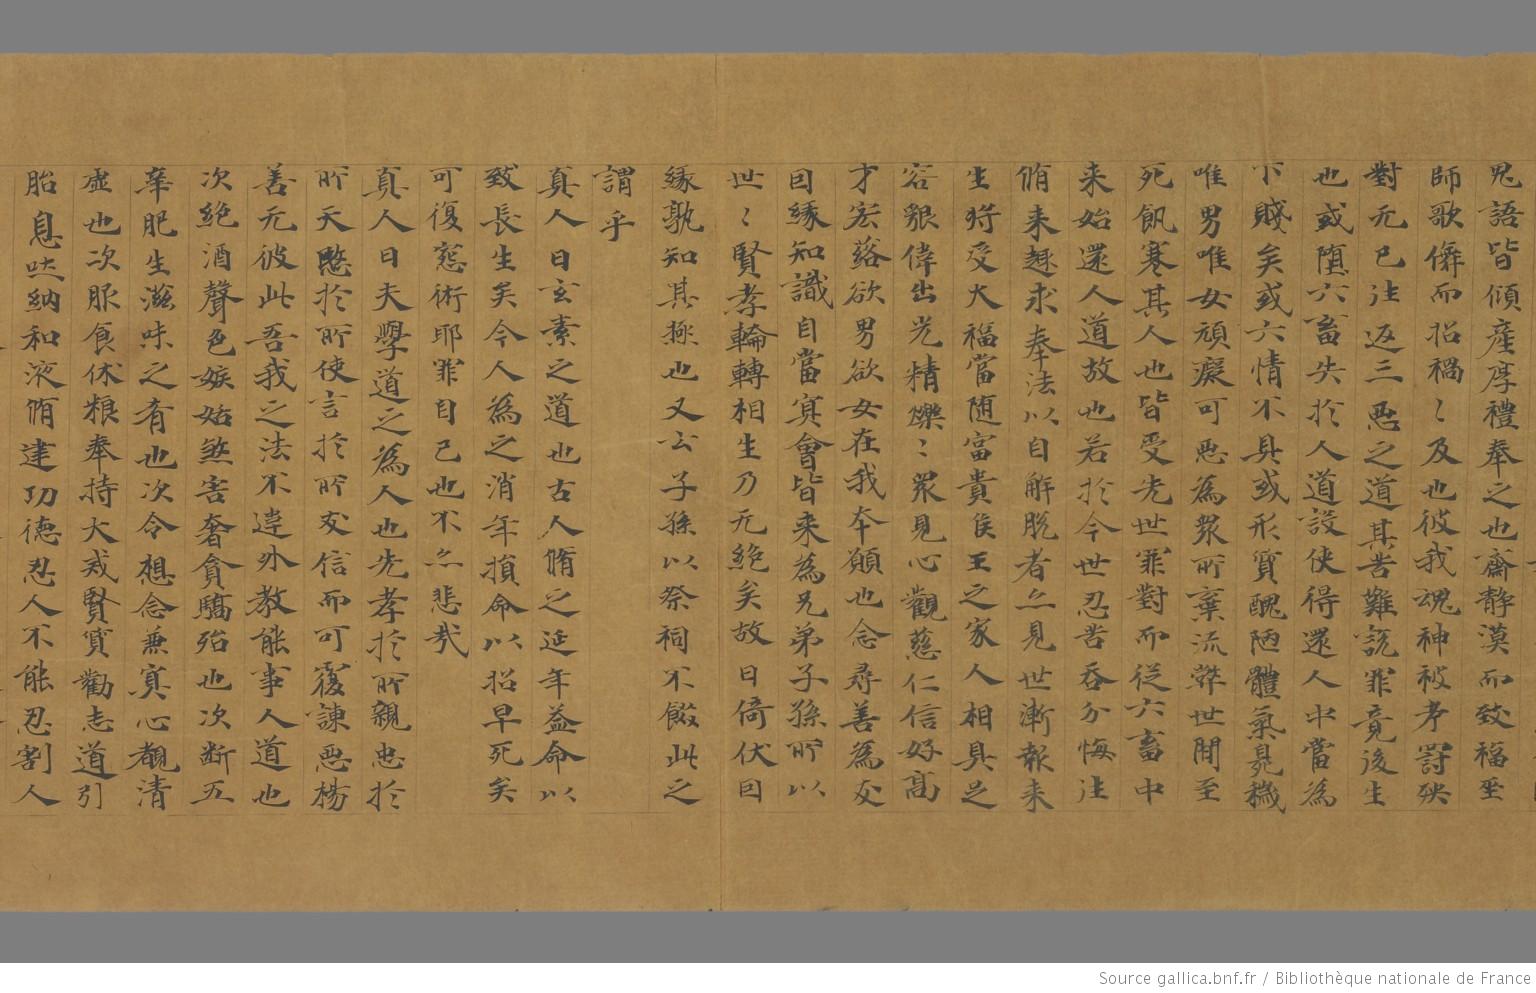 鬼語皆傾産厚禮奉之也齋静漠而致福巫
師歌儛而招禍〻及也彼我魂神被考罸殃
對无已往返三惡之道其苦難說罪竟後生
也或墮六畜失於人道設使得還人中當為
下賤矣或六情不具或形質醜陋體氣臰穢
唯男唯女頑癡可惡為衆所棄流離世間至
死飢寒其人也皆受先世罪對而從六畜中
来始還人道故也若於今世忍苦吞分悔往
脩来趣求奉法以自解脱者亦見世漸報来
生将受大福當随富貴侯王之家人相具足
容貌偉出光精爍〻衆見心觀慈仁信好高
才宏谿欲男欲女在我夲願也念尋善為友
曰緣知識自當㝠會皆来為兄弟子孫所以
世〻賢孝輪轉相生乃无絶矣故日倚伏曰
緣孰知其極也又云子孫以祭祠不餟此之
謂乎
真人曰玄素之道也古人脩之延年益命以
致長生矣今人為之消年損命以招早死矣
可復寃術耶罪自己也不亦悲㢤
真人曰夫學道之為人也先孝於所親忠於
所天愍於所使言於所友信而可覆諫惡揚
善无彼此吾我之法不違外教能事人道也
次絶酒聲色嫉妬煞害奢貪驕殆也次断五
辛肥生滋味之肴也次令想念兼㝠心覩清
虚也次服食休粮奉持大戒賢實勸志道引
胎息吐納和液脩建功德忍人不能忍割人
Source gallica.bnf.fr / Bibliothèque nationale de France